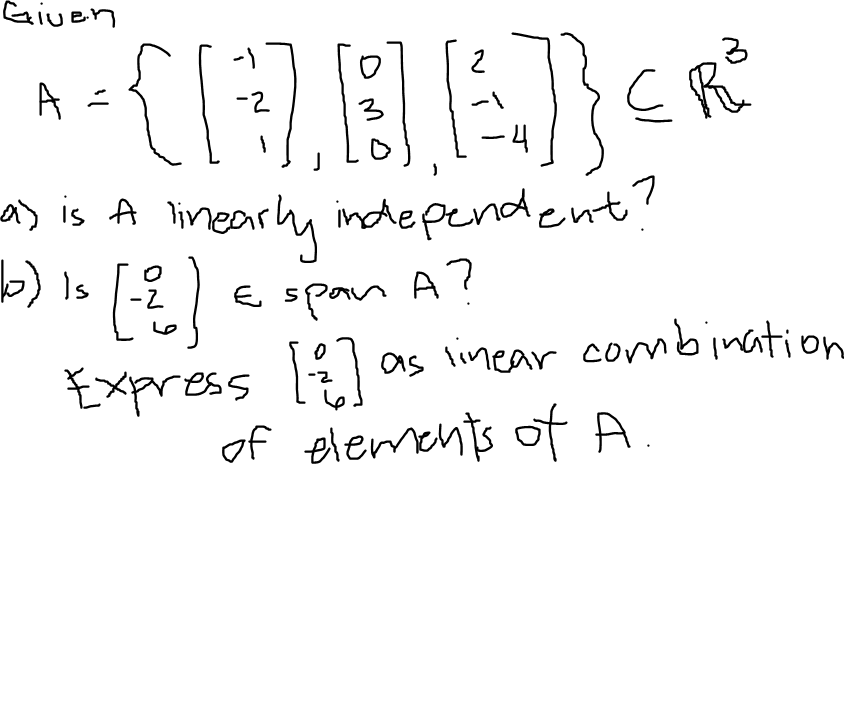 Given
A = { [-1 -2 1], [0 3 0], [2 -1 -4] } ⊆ ℝ³
a) is A linearly independent?
b) Is [0 -2 6] ∈ span A?
Express [0 -2 6] as linear combination
of elements of A.